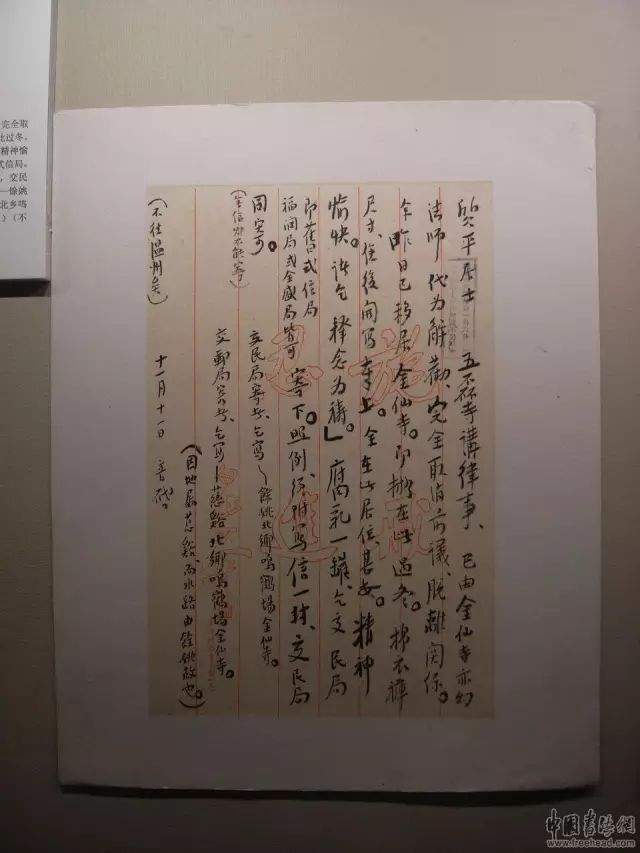 完全取
此过冬。
精神愉
式信局。
，交民
—馀姚
北乡鸣
）（不
質平居士 五磊寺講律事、已由金仙寺亦幻
法師代為解勸、完全取消前議、脱離関係。
余昨日已移居金仙寺。即擬在此過冬。棉衣褲
尺寸、俟後開寫奉上。余在此居住甚安。精神
愉快。諸乞釋念為禱。」腐乳一罐、乞交民局
即舊式信局
福润局或全盛局皆可
寄下。照例、須附寫信一封、交民局
同寄可。
（無信則不能寄）
交民局寄者、乞寫～餘姚北鄉鳴鶴場金仙寺。
交郵局寄者、乞寫～慈谿北鄉鳴鶴場金仙寺。
（因地屬慈谿、而水路由餘姚故也。）
十一月十一日 音啓
（不往温州矣）
中国书法网
www.freehead.com